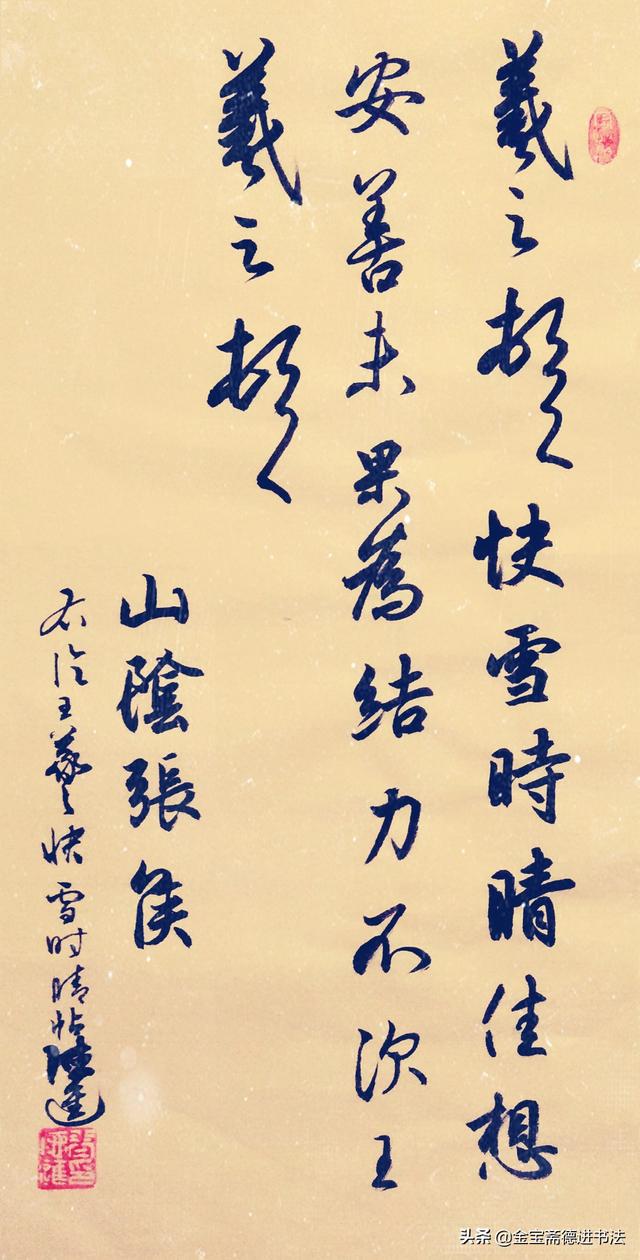 羲之頓首快雪時晴佳想
安善未果為結力不次王
羲之頓首
山陰張侯
右临王羲之快雪时晴帖德進
头条 @金宝斋德进书法